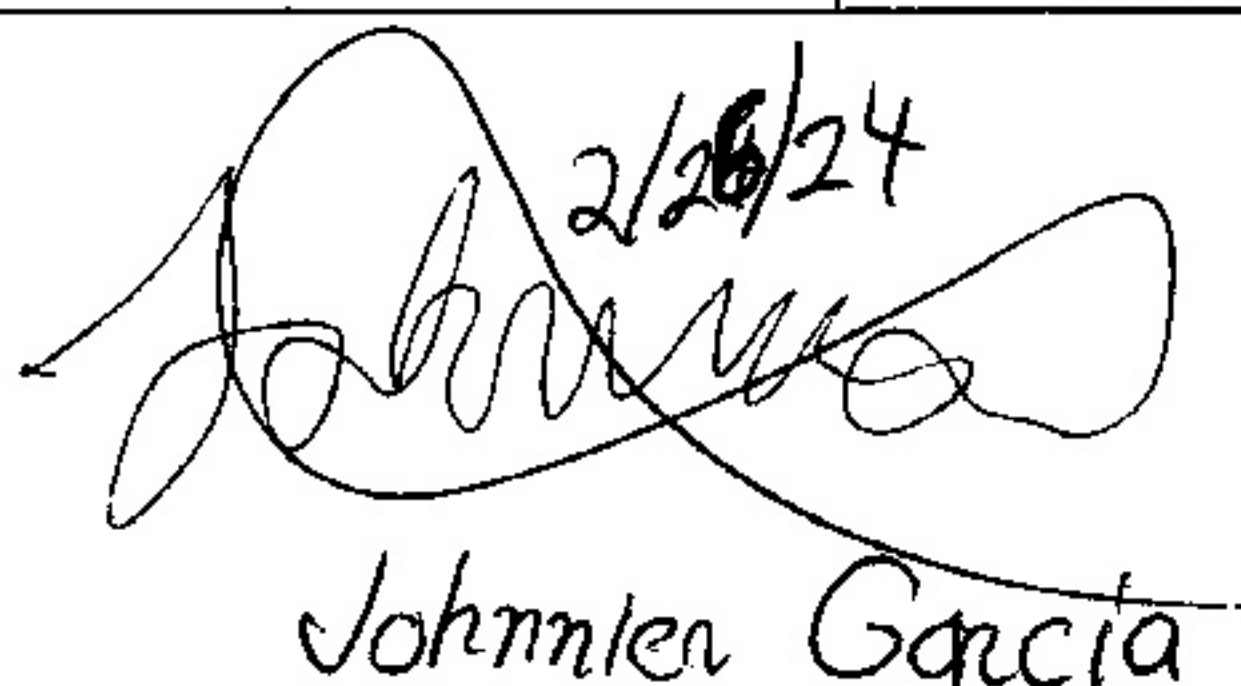 2/26/24
Johnnier García